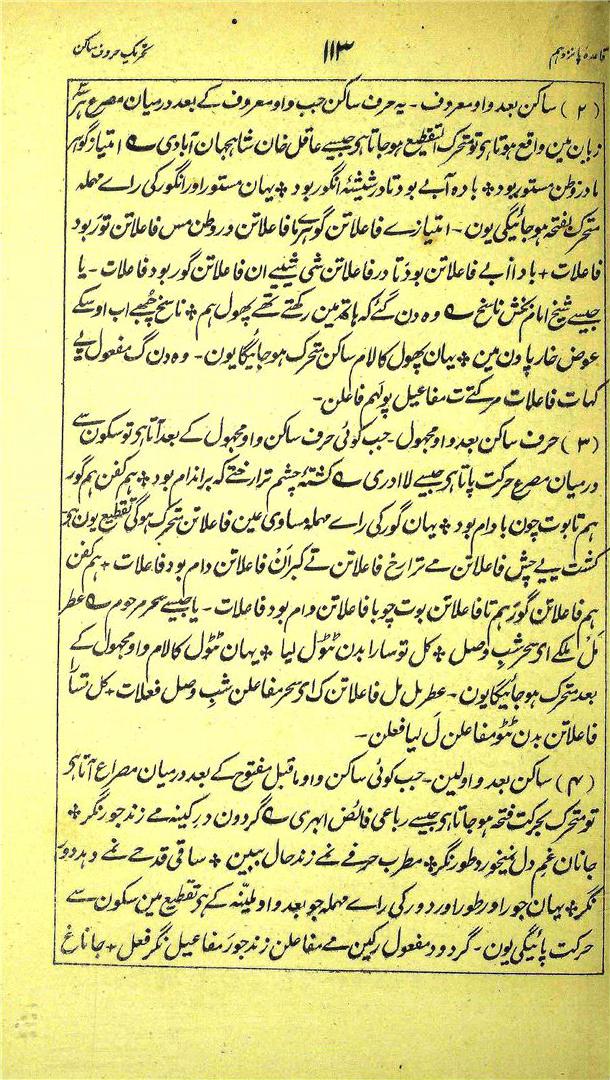 قاعدۂ پانزدہم ۱۱۳ تحریک حروف ساکن
(۲) ساکن بعد واو معروف ۔ یہ حرف ساکن جب واو معروف کے بعد درمیان مصرع ہر
زبان مین واقع ہوتا ہی تو متحرک التقطیع ہو جاتا ہی جیسے عاقل خان شاہجہان آبادی ؎ امتیاز گوہر
ما در وطن مستور بود ٭ بادہ آبے بود تا در شیشۂ انگور بود ٭ یہان مستور اور انگور کی راے مہملہ
متحرک بفتحہ ہو جائیگی یون ۔ امتیازے فاعلاتن گوہرے ما فاعلاتن در وطن مس فاعلاتن تور بود
فاعلات + بادا آبے فاعلاتن بود تا در فاعلاتن شی شیے ان فاعلاتن گور بود فاعلات ۔ یا
جیسے شیخ امام بخش ناسخ ؎ وہ دن گئے کہ ہاتھ مین رکھتے تھے پھول ہم ٭ ناسخ چُبھے اب اوسکے
عوض خار پاون مین ٭ یہان پھول کا لام ساکن متحرک ہو جائیگا یون ۔ وہ دن گ مفعول یے
کہات فاعلات مرکتے ت مفاعیل پولَہم فاعلن ۔
(۳) حرف ساکن بعد واو مجہول ۔ جب کوئی حرف ساکن واو مجہول کے بعد آتا ہی تو سکون سے
درمیان مصرع حرکت پاتا ہی جیسے لا ادری ؎ کشتۂ چشم ترا رختے کہ بر اندام بود ٭ ہم کفن ہم گور
ہم تابوت چون بادام بود ٭ یہان گور کی راے مہملہ مساوی عین فاعلاتن متحرک ہوگی تقطیع یون ہی
کشت ییے چش فاعلاتن مے ترا رخ فاعلاتن تے کبراَن فاعلاتن دام بود فاعلات + ہم کفن
ہم فاعلاتن گورَ ہم تا فاعلاتن بوت چو با فاعلاتن دام بود فاعلات ۔ یا جیسے سحر مرحوم ؎ عطر
مَل مَلکے ای سحر شبِ وصل ٭ کل تو سارا بدن ٹٹول لیا ٭ یہان ٹٹول کا لام واو مجہول کے
بعد متحرک ہو جائیگا یون ۔ عطر مل مل فاعلاتن ک ای سحر مفاعلن شبِ وصل فعلات + کل تسارا
فاعلاتن بدن ٹٹو مفاعلن لَ لیا فعلن ۔
(۴) ساکن بعد واو لین ۔ جب کوئی ساکن واو ماقبل مفتوح کے بعد درمیان مصراع آتا ہی
تو متحرک بحرکت فتحہ ہو جاتا ہی جیسے رباعی فائض ابہری ؎ گردون درِ کینہ مے زند جور نگر ٭
جانان غمِ دل نمیخورد طور نگر ٭ مطرب حرفے نمے زند حال ببین ٭ ساقی قدحے نمے دہد دور
نگر ٭ یہان جور اور طور اور دور کی راے مہملہ جو بعد واو لینہ کے ہی تقطیع مین سکون سے
حرکت پائیگی یون ۔ گردو د مفعول رکین مے مفاعلن زند جورَ مفاعیل نگر فعل + جانا غ